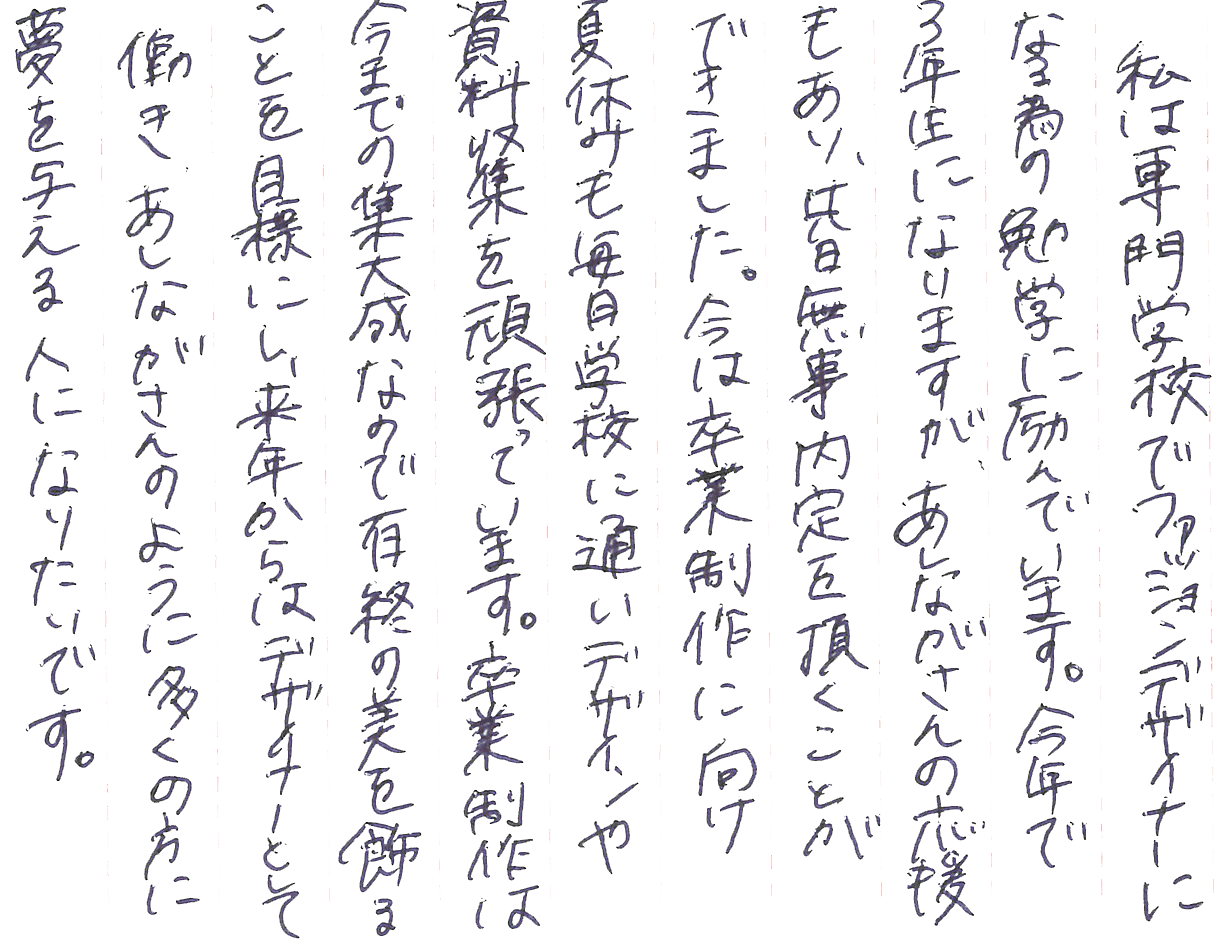 私は専門学校でファッションデザイナーに
なる為の勉学に励んでいます。今年で
3年生になりますが、あしながさんの応援
もあり、先日無事内定を頂くことが
できました。今は卒業制作に向け
夏休みも毎日学校に通いデザインや
資料収集を頑張っています。卒業制作は
今までの集大成なので有終の美を飾る
ことを目標にし、来年からはデザイナーとして
働き、あしながさんのように多くの方に
夢を与える人になりたいです。